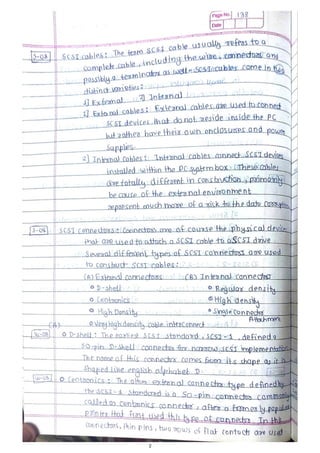 Page No. 138
Date
S-03 SCSI cables: The team SCSI cable usually refers to a
complete cable, including the wire, connectors and
possibly a terminator as well. SCSI cables come in two
distinct varieties:
1] External 2] Internal
1] External cables: External cables are used to connect
SCSI devices that do not reside inside the PC
but rather have their own enclosures and power
supplies.
2] Internal cables: Internal cables connect SCSI devices
installed within the PC system box. These cables
are totally different in construction, primarily
because of the external environment
represent much more of a risk to the data corruption
SCSI Connectors: Connectors are of course the physical devices
that are used to attach a SCSI cable to a SCSI drive
Several different types of SCSI connectors are used
to construct SCSI cables:
(A) External connectors (B) Internal connectors
o D-shell o Regular density
o Centronics o High density
o High Density o Single connector
(A) o Very high density cable interconnect Attachment
o D-shell: The earliest SCSI standard, SCSI-1, defined a
50-pin D-shell connector for narrow SCSI implementation
The name of this connector comes from its shape as it is
shaped like english alphabet D.
o Centronics: The other external connector type defined by
the SCSI-1 standard is a 50-pin connector commonly
called as Centronics connector, after a formerly popular
printer that first used this type of connector. In the
connectors, thin pins, two rows of flat contacts are used
2